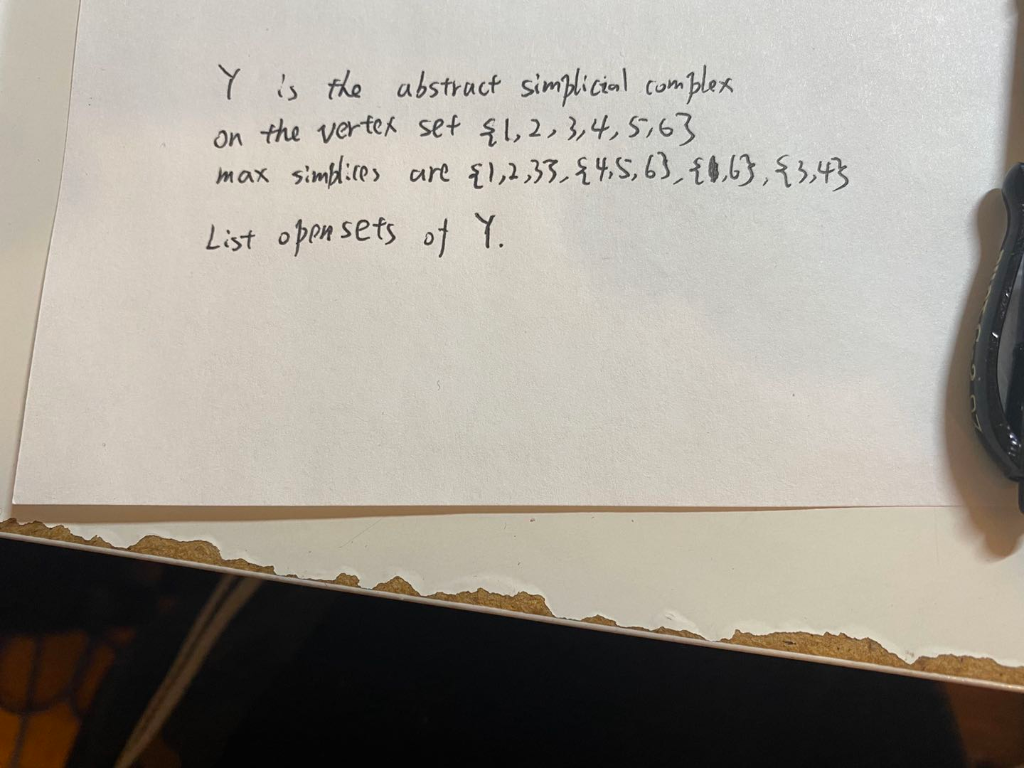 Y is the abstract simplicial complex
on the vertex set {1, 2, 3, 4, 5, 6}
max simplices are {1,2,3}, {4,5,6}, {1,6}, {3,4}
List open sets of Y.